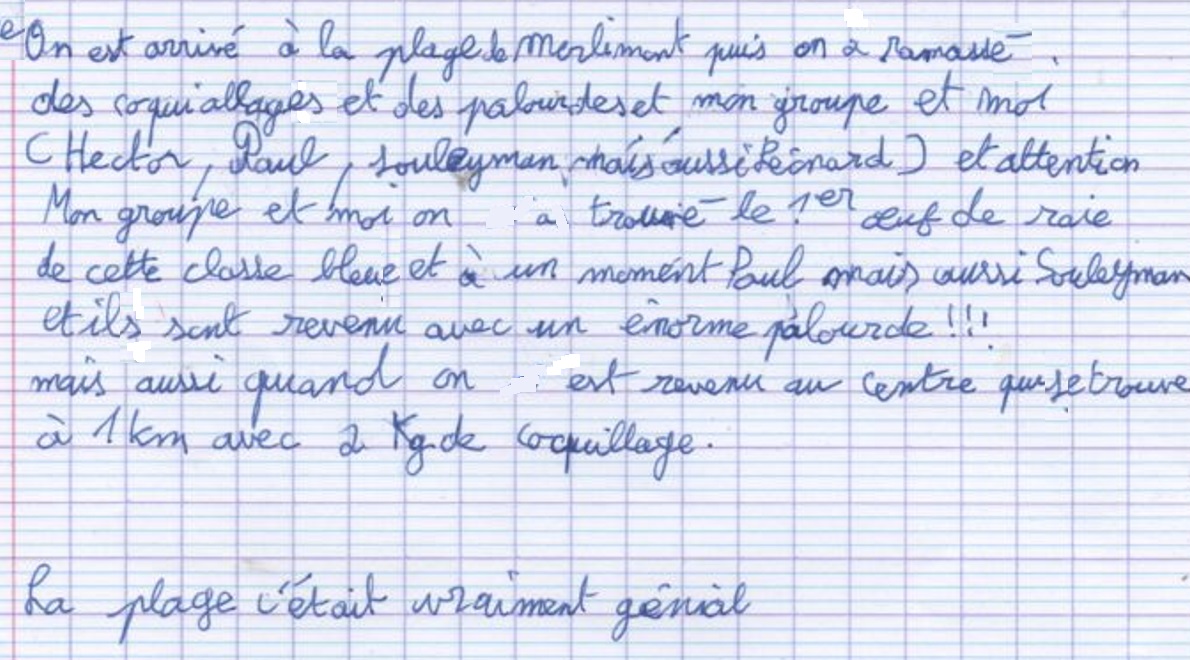 On est arrivé à la plage de Merlimont puis on a ramassé
des coquiallages et des palourdes et mon groupe et moi
(Hector, Paul, souleyman, mais aussi Léonard) et attention
Mon groupe et moi on a trouvé le 1er œuf de raie
de cette classe bleue et à un moment Paul mais aussi Souleyman
et ils sont revenu avec un énorme palourde !!!
mais aussi quand on est revenu au centre qui se trouve
à 1 km avec 2 Kg de coquillage.
La plage c'était vraiment génial